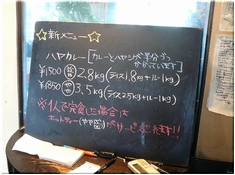 ☆新メニュー☆
ハヤカレー[カレーとハヤシが半分ずつかかっています]
¥1500 2.8kg(ライス1.8kg+ルー1kg)
¥1850 3.5kg(ライス2.5kg+ルー1kg)
※1人で完食した場合は
ホットティーがサービスされます!!